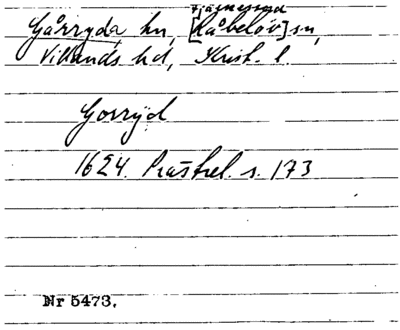 Fjälkestad
Gårryda, hn, [Råbelöv] sn,
Villands hd, Krist. l.
Gorryd
1624. Prästrel. s. 173
Nr 5473.